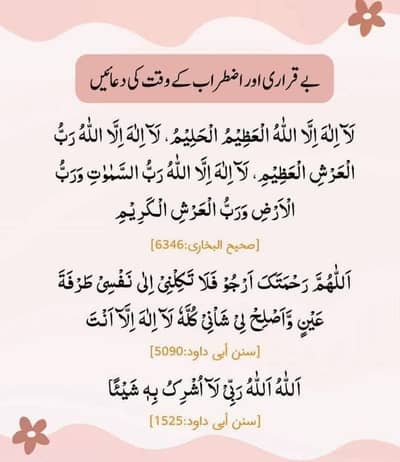 بے قراری اور اضطراب کے وقت کی دعائیں
لَآ اِلٰهَ اِلَّا اللّٰهُ الْعَظِيْمُ الْحَلِيْمُ، لَآ اِلٰهَ اِلَّا اللّٰهُ رَبُّ
الْعَرْشِ الْعَظِيْمِ، لَآ اِلٰهَ اِلَّا اللّٰهُ رَبُّ السَّمٰوٰتِ وَرَبُّ
الْاَرْضِ وَرَبُّ الْعَرْشِ الْكَرِيْمِ
[صحيح البخاری:6346]
اَللّٰهُمَّ رَحْمَتَكَ اَرْجُوْ فَلَا تَكِلْنِيْ اِلٰى نَفْسِيْ طَرْفَةَ
عَيْنٍ وَّاَصْلِحْ لِيْ شَاْنِيْ كُلَّهٗ لَآ اِلٰهَ اِلَّآ اَنْتَ
[سنن أبی داود:5090]
اَللّٰهُ اَللّٰهُ رَبِّيْ لَآ اُشْرِكُ بِهٖ شَيْئًا
[سنن أبی داود:1525]